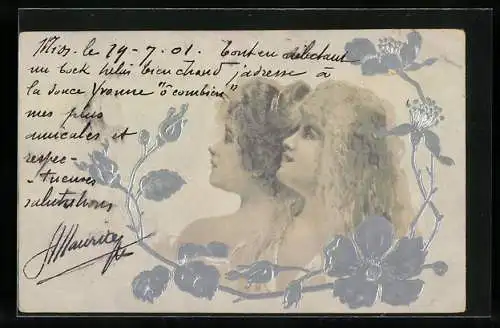 Mios, le 29-7.01. Tout en délectant
un bock hélas bien chaud j'adresse à
la douce Yvonne "ô combien"
mes plus
amicales et
respec-
-tueuses
salutations
Maurice